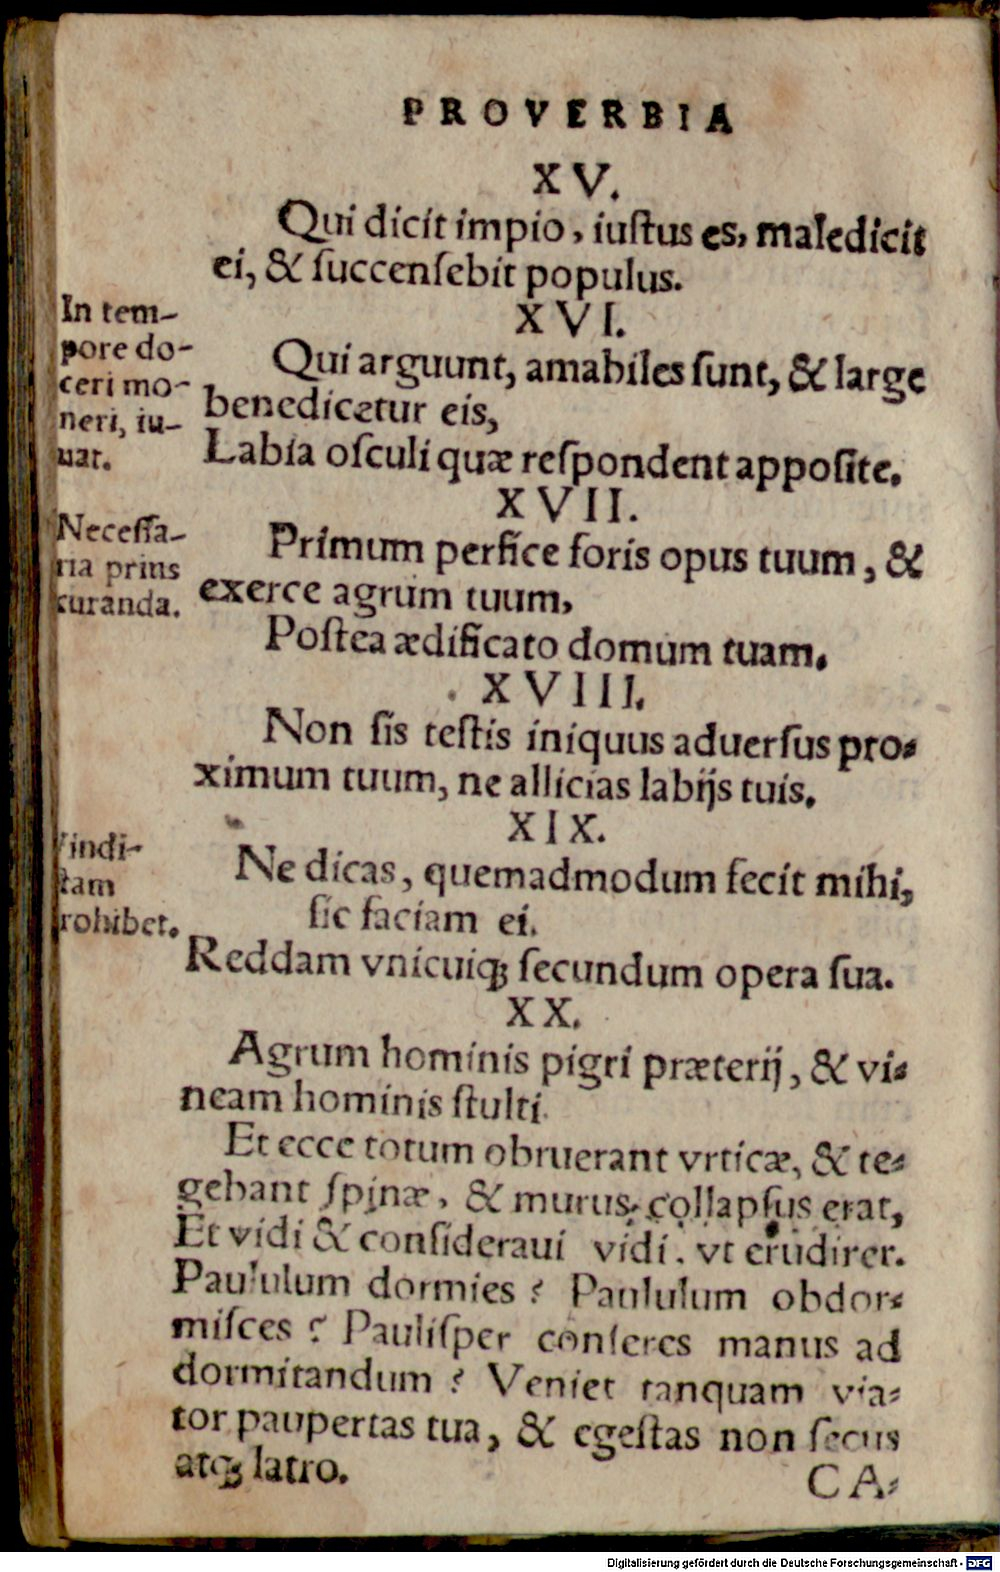 PROVERBIA
XV.
Qui dicit impio, iuſtus es, maledicit
ei, & ſuccenſebit populus.
XVI.
In tem-
pore do-
ceri mo-
neri, iu-
uat.
Qui arguunt, amabiles ſunt, & large
benedicetur eis,
Labia oſculi quæ reſpondent appoſite.
XVII.
Neceſſa-
ria prius
curanda.
Primum perfice foris opus tuum, &
exerce agrum tuum,
Poſtea ædificato domum tuam.
XVIII.
Non ſis teſtis iniquus aduerſus pro-
ximum tuum, ne allicias labijs tuis.
XIX.
indi-
ctam
rohibet.
Ne dicas, quemadmodum fecit mihi,
ſic faciam ei.
Reddam vnicuiqꝫ ſecundum opera ſua.
XX.
Agrum hominis pigri præterij, & vi-
neam hominis ſtulti.
Et ecce totum obruerant vrticæ, & te-
gebant ſpinæ, & murus collapſus erat,
Et vidi & conſideraui vidi, vt erudirer.
Paululum dormies? Paululum obdor-
miſces? Pauliſper conſeres manus ad
dormitandum? Veniet tanquam via-
tor paupertas tua, & egeſtas non ſecus
atqꝫ latro.
CA-
Digitalisierung gefördert durch die Deutsche Forschungsgemeinschaft - DFG